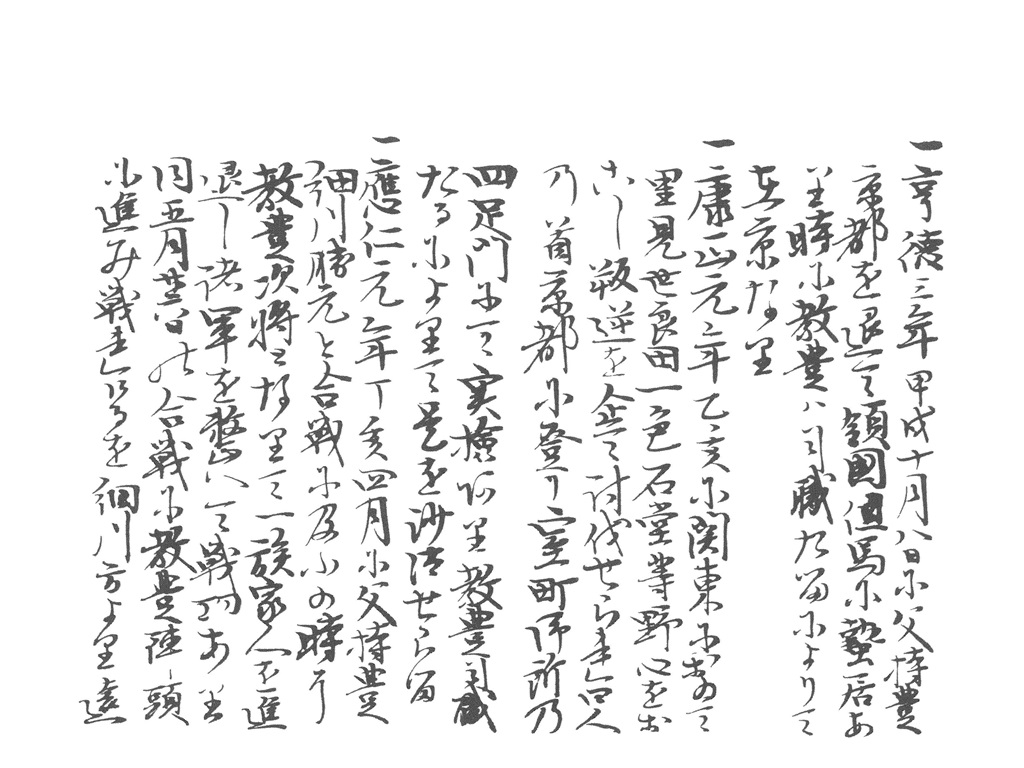 一享徳三年甲戌十月八日に父持豊
京都を退去て領國但馬に蟄居あ
り時に教豊ハ司職たるによりて
在京なり
一康正元年乙亥に関東におゐて
里見世良田一色石堂等野心をお
こし叛逆を企て討伐せられ六人
乃首京都に登り室町御所乃
四足門にて実検あり教豊司職
たるによりて是を沙汰せらる
一應仁元年丁亥四月に父持豊
細川勝元と合戦に及ふの時ハ
教豊次将となりて一族家人を進
退し諸軍を整へて戦功あり
同五月廿六日の合戦に教豊陣頭
に進み戦れけるを細川方より遠